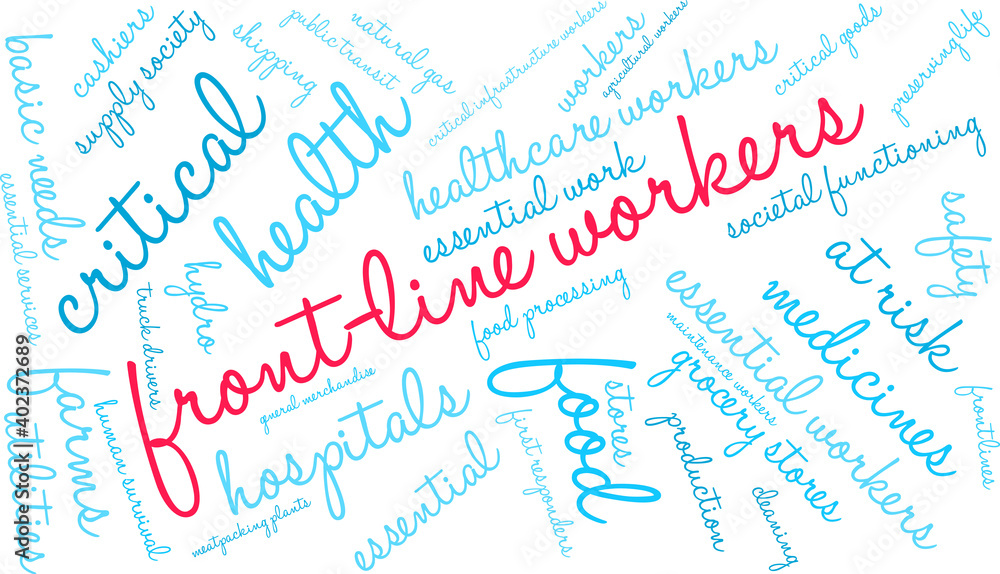 cashiers
supply society
basic needs
critical
shipping
public transit
natural gas
health
critical infrastructure workers
workers
agricultural workers
healthcare workers
critical goods
preserving life
essential work
front-line workers
societal functioning
essential services
hydro
truck drivers
food processing
safety
at risk
medicines
essential workers
maintenance workers
grocery stores
general merchandise
hospitals
food
stores
frontlines
utilities
farms
human survival
meatpacking plants
essential
first responders
production
cleaning
Adobe Stock | #402372689
Adobe Stock